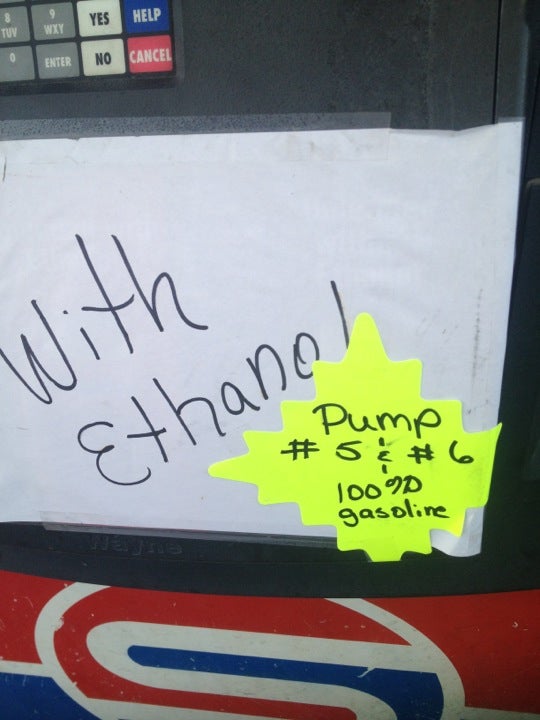 8 9 YES HELP
TUV WXY
0 ENTER NO CANCEL
With
Ethanol
Pump
# 5 & # 6
100%
gasoline
Wayne